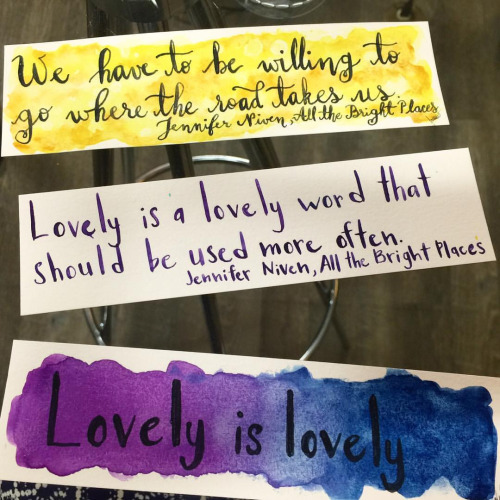 We have to be willing to
go where the road takes us.
Jennifer Niven, All the Bright Places
Lovely is a lovely word that
should be used more often.
Jennifer Niven, All the Bright Places
Lovely is lovely